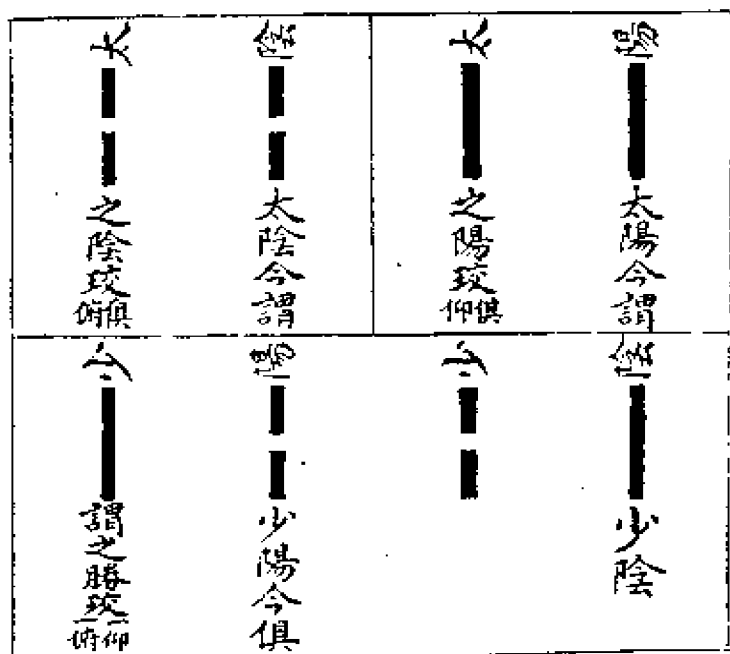 太陽
太陽今謂
之陽珓俱仰
太陰
太陰今謂
之陰珓俱俯
少陰
少陰
少陽
少陽今俱
謂之勝珓一仰一俯